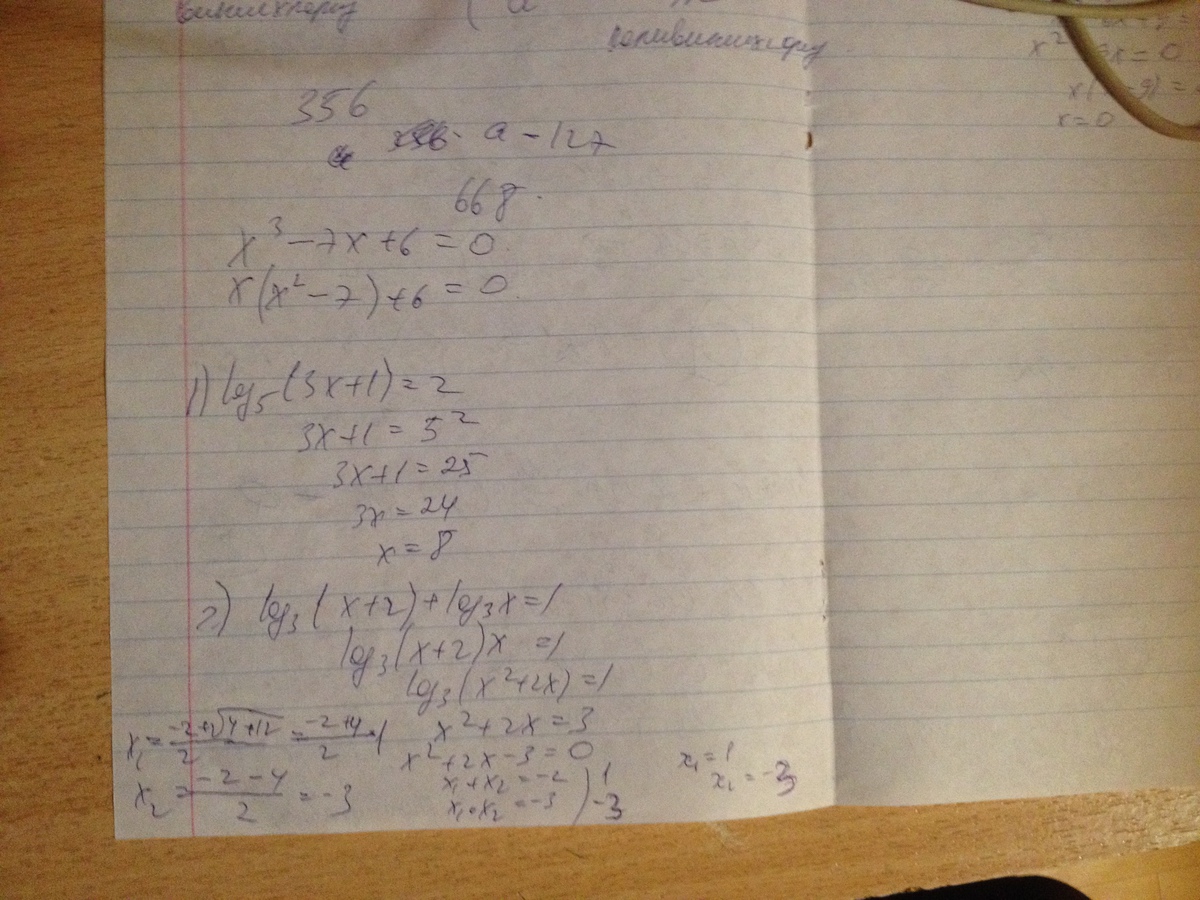 356
a - 127
668.
x³ - 7x + 6 = 0.
x(x² - 7) + 6 = 0.
1) log₅(3x+1) = 2
3x+1 = 5²
3x+1 = 25
3x = 24
x = 8
2) log₃(x+2) + log₃x = 1
log₃(x+2)x = 1
log₃(x²+2x) = 1
x² + 2x = 3
x² + 2x - 3 = 0
x₁ + x₂ = -2 ) 1
x₁ · x₂ = -3 ) -3
x₁ = 1
x₂ = -3
x₁ = (-2+√(4+12))/2 = (-2+4)/2 = 1
x₂ = (-2-4)/2 = -3
x = 0